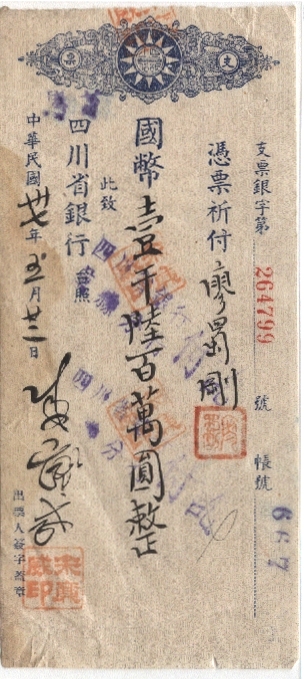 支票
支票銀字第 264799 號 帳號 667
憑票祈付廖蜀剛
國幣壹千陸百萬圓整
此致
四川省銀行 台照
中華民國卅七年五月廿三日
出票人簽字蓋章